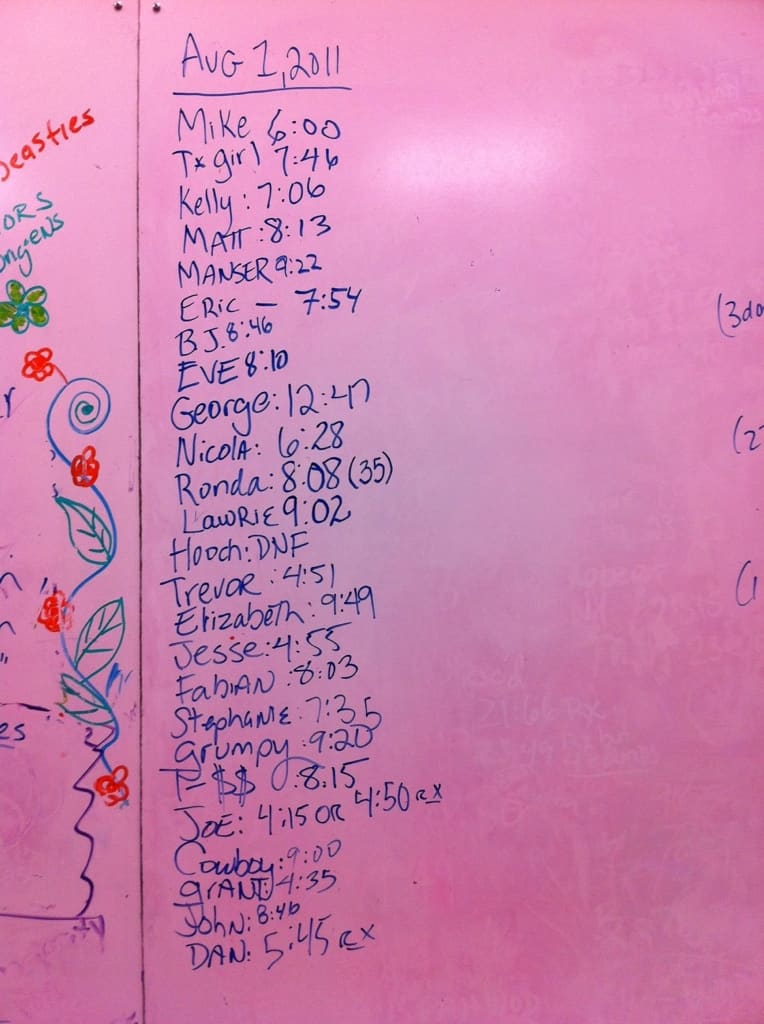 Aug 1, 2011
Mike 6:00
Tx girl 7:46
Kelly: 7:06
MATT: 8:13
MANSER 9:22
ERic — 7:54
BJ. 8:46
EVE 8:10
George: 12:47
Nicola: 6:28
Ronda: 8:08 (35)
LawRiE 9:02
Hooch: DNF
Trevor: 4:51
Elizabeth: 9:49
Jesse: 4:55
FabiAN: 8:03
Stephanie: 7:35
Grumpy: 9:20
P-$$: 8:15
JOE: 4:15 OR 4:50 RX
Cowboy: 9:00
grANT: 4:35
John: 8:46
DAN: 5:45 RX
beasties
ORS
(3do
(2
(1
es